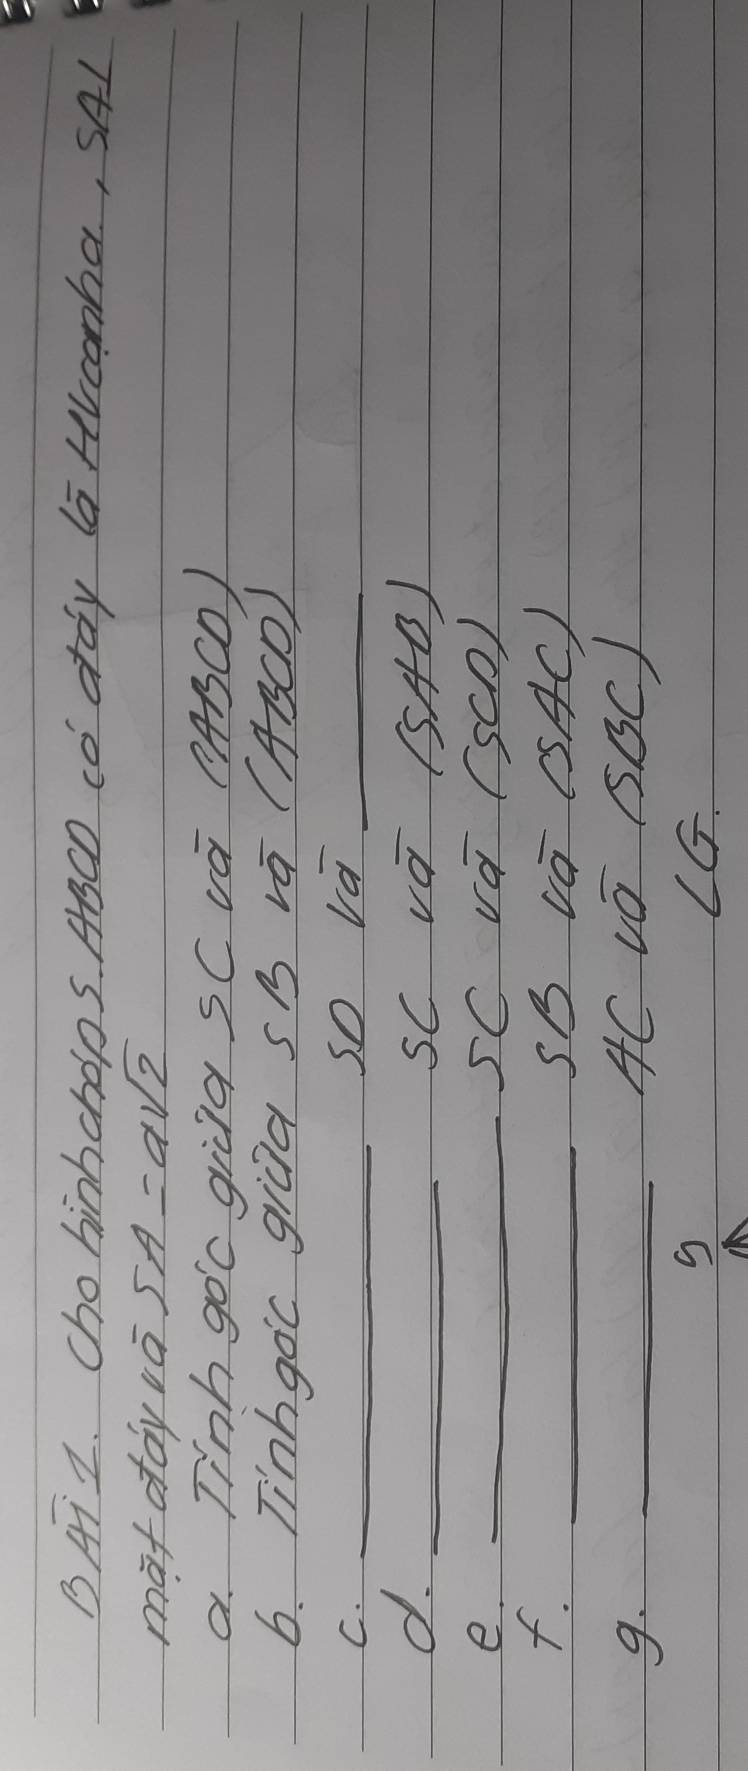 BÀI 1. Cho hình chóp S.ABCD có đáy là HV cạnh a, SA⊥
mặt đáy và SA = a√2
a. Tính góc giữa SC và (ABCD)
b. Tính góc giữa SB và (ABCD)
c. ______ SD và ______
d. ______ SC và (SAB)
e. ______ SC và (SCD)
f. ______ SB và (SAC)
g. ______ AC và (SBC)
LG.
S